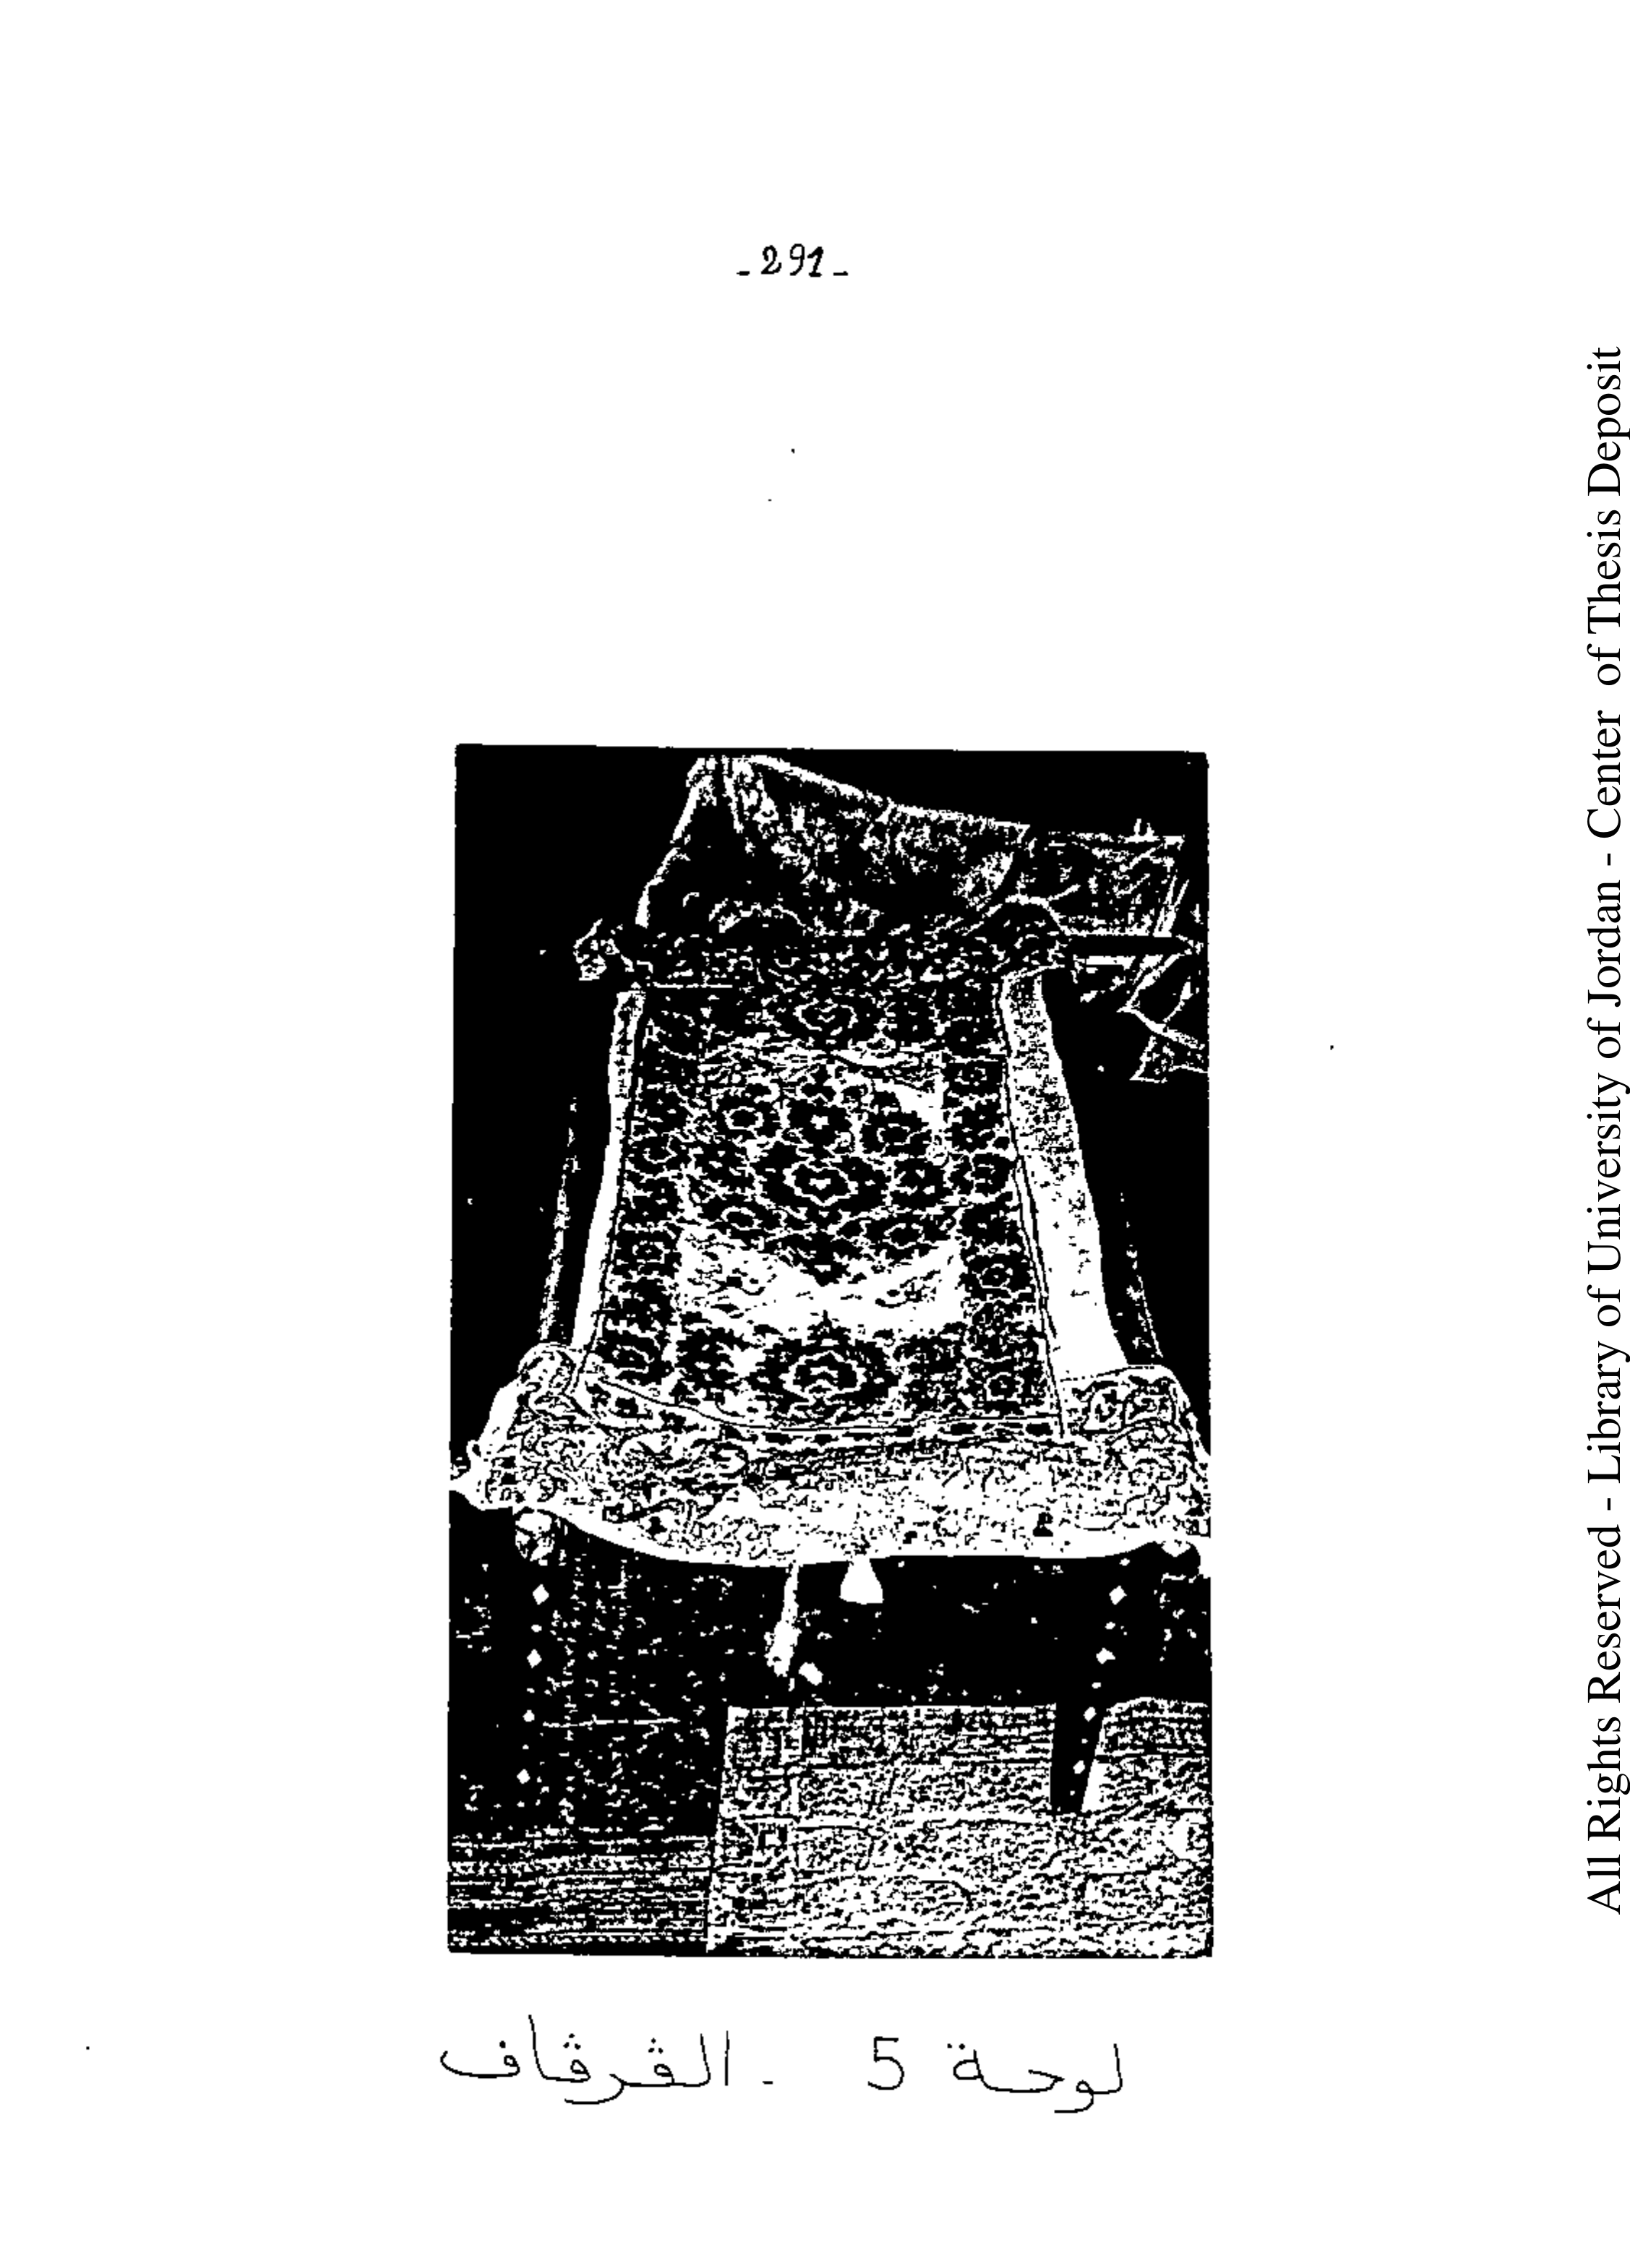 -291-
لوحة 5 - الڨرڨاف
All Rights Reserved - Library of University of Jordan - Center of Thesis Deposit